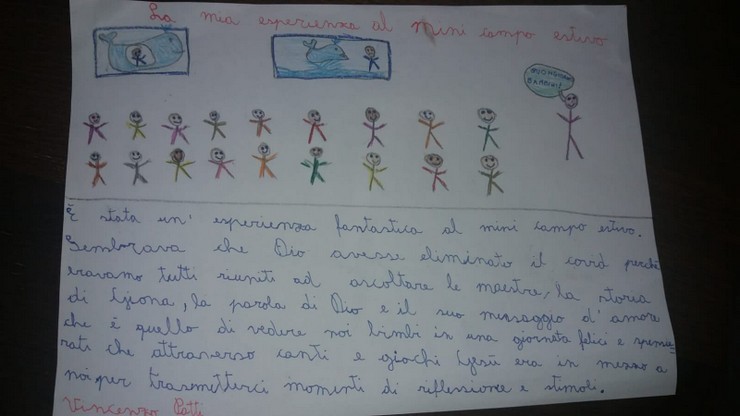 La mia esperienza al mini campo estivo
BUONGIORNO
BAMBINI!
È stata un' esperienza fantastica al mini campo estivo.
Sembrava che Dio avesse eliminato il covid perché
eravamo tutti riuniti ad ascoltare le maestre, la storia
di Giona, la parola di Dio e il suo messaggio d'amore
che è quello di vedere noi bimbi in una giornata felici e spensie-
rati che attraverso canti e giochi Gesù era in mezzo a
noi per trasmetterci momenti di riflessione e stimoli.
Vincenzo Patti